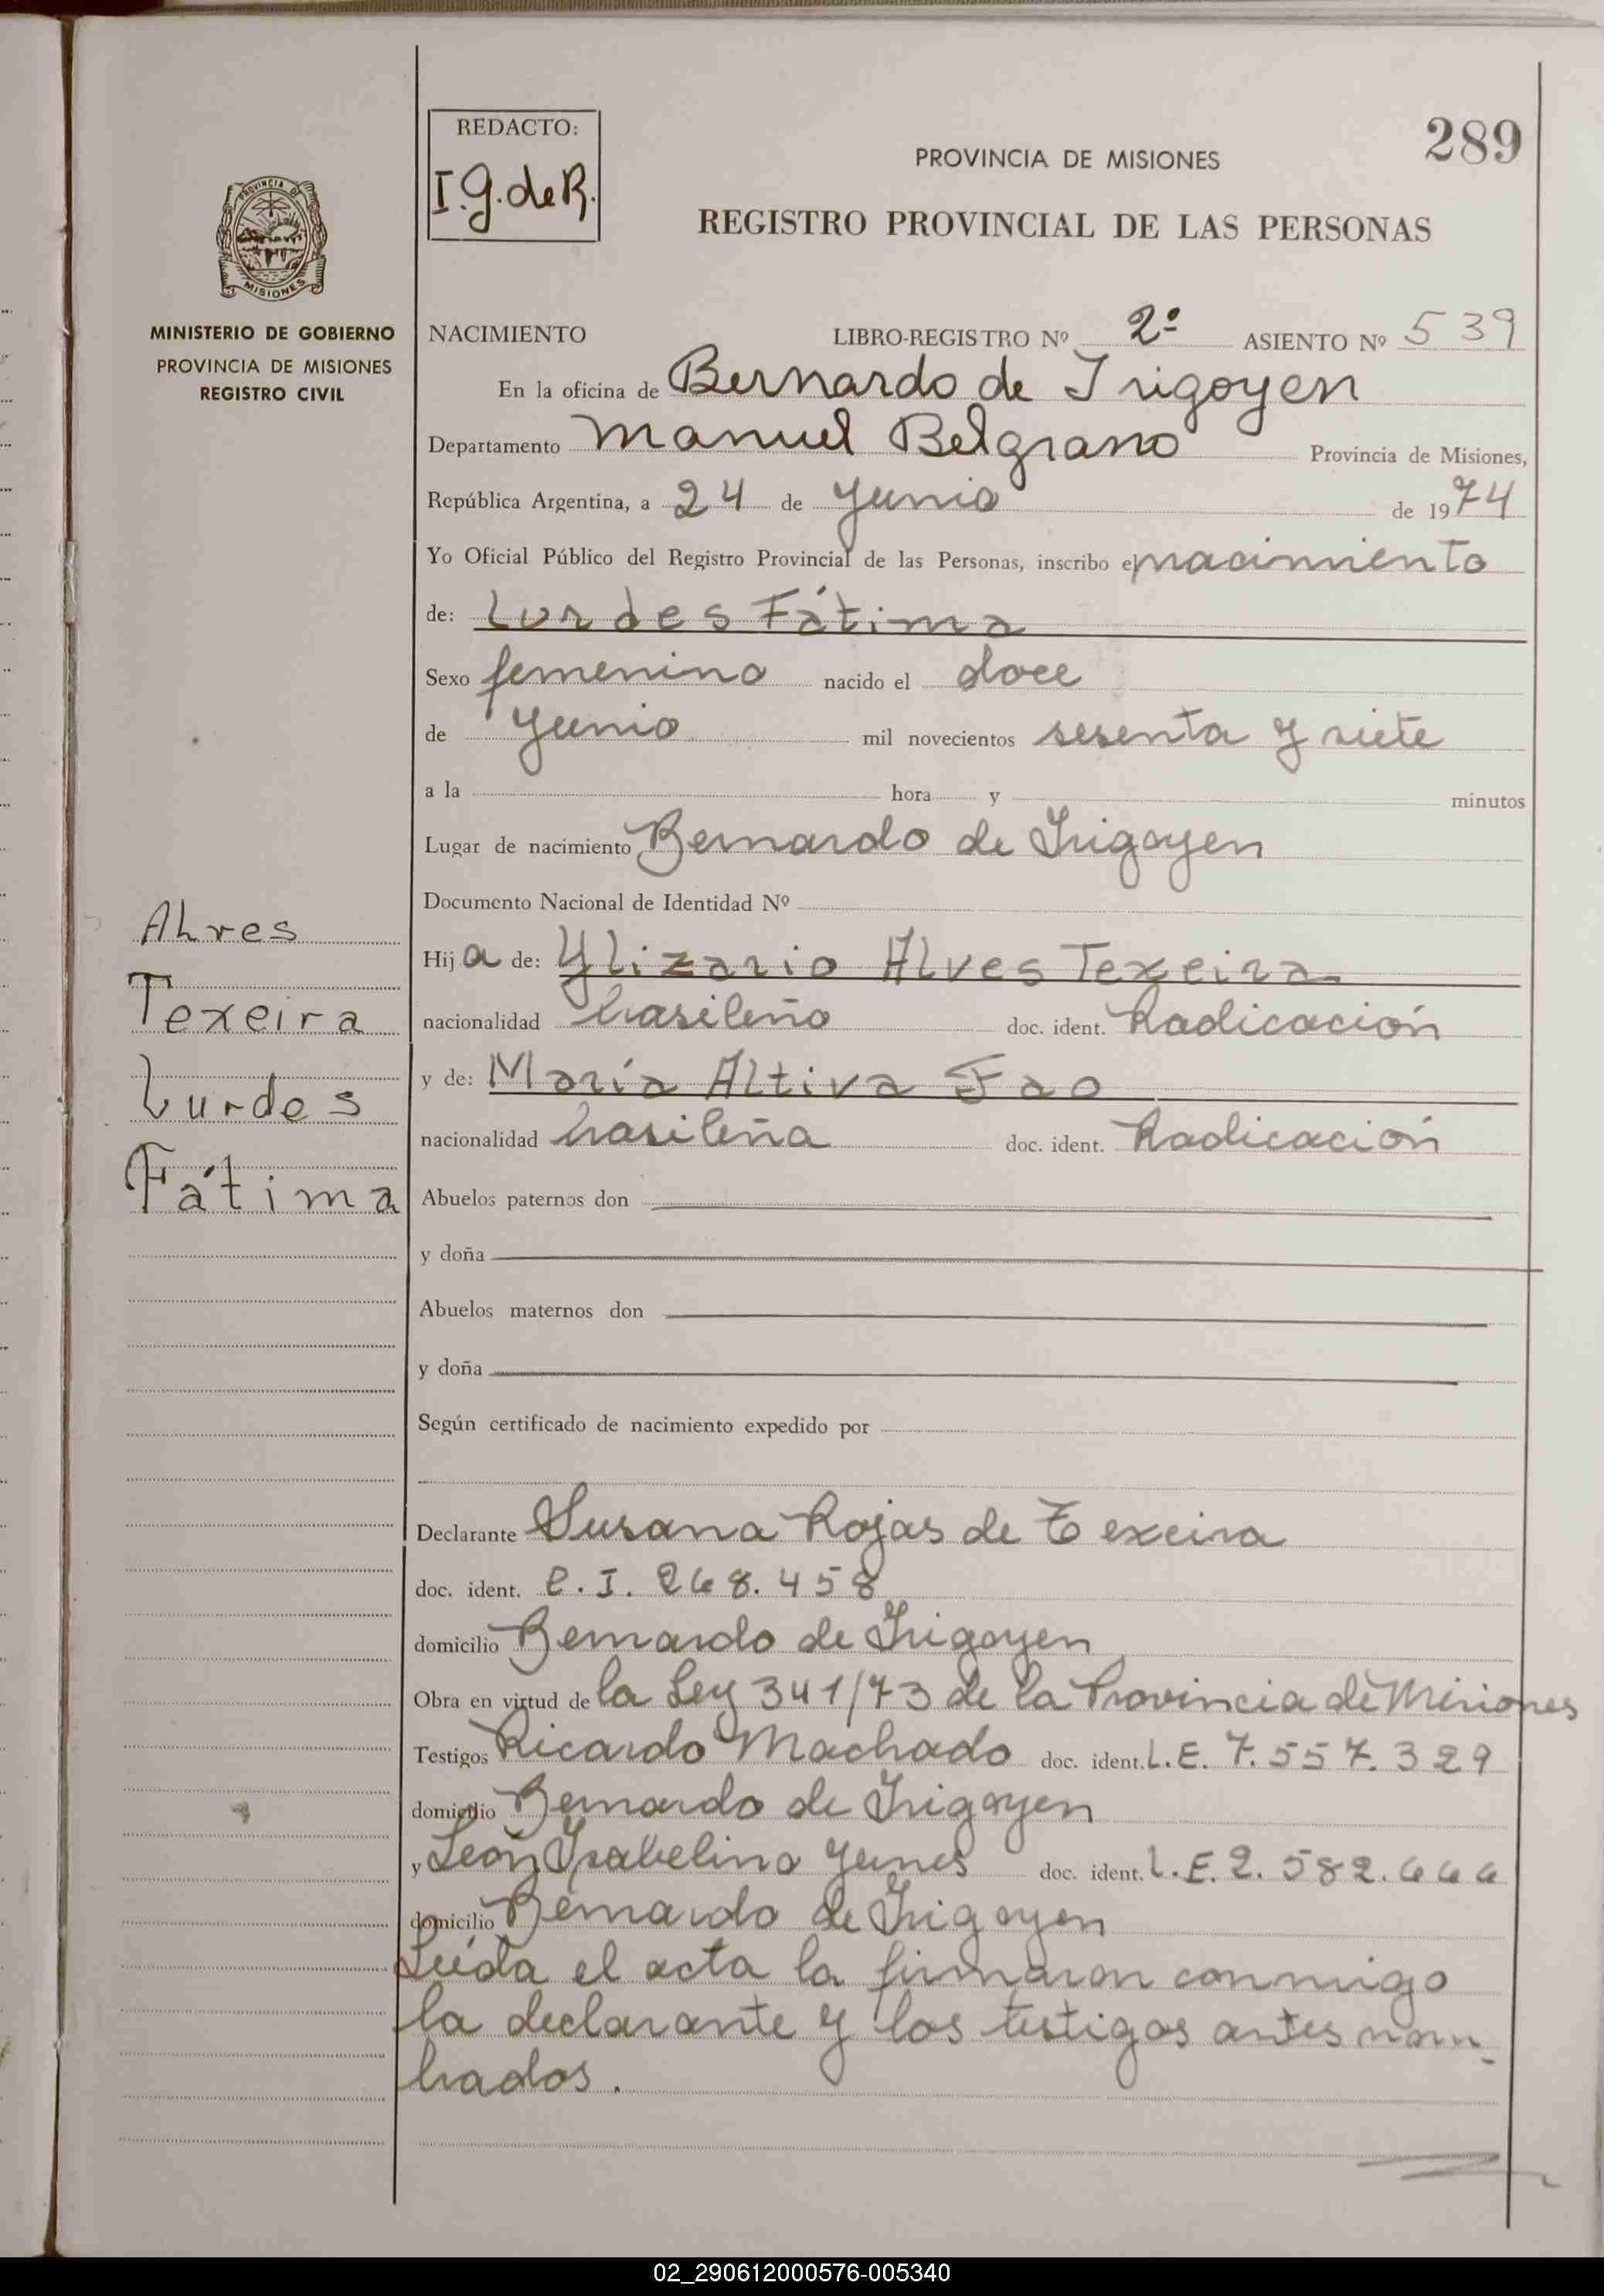 REDACTO:
I.G.deR.
289
PROVINCIA DE MISIONES
REGISTRO PROVINCIAL DE LAS PERSONAS
PROVINCIA DE
MISIONES
MINISTERIO DE GOBIERNO
PROVINCIA DE MISIONES
REGISTRO CIVIL
NACIMIENTO LIBRO-REGISTRO Nº 2º ASIENTO Nº 539
En la oficina de Bernardo de Irigoyen
Departamento Manuel Belgrano Provincia de Misiones,
República Argentina, a 24 de Junio de 1974
Yo Oficial Público del Registro Provincial de las Personas, inscribo el nacimiento
de: Lurdes Fátima
Sexo femenino nacido el doce
de Junio mil novecientos sesenta y siete
a la hora y minutos
Lugar de nacimiento Bernardo de Irigoyen
Documento Nacional de Identidad Nº
Alves
Texeira
Lurdes
Fátima
Hija de: Ylizario Alves Texeira
nacionalidad brasileño doc. ident. Radicación
y de: María Altiva Fao
nacionalidad brasileña doc. ident. Radicación
Abuelos paternos don
y doña
Abuelos maternos don
y doña
Según certificado de nacimiento expedido por
Declarante Susana Rojas de Texeira
doc. ident. C.I. 268.458
domicilio Bernardo de Irigoyen
Obra en virtud de la Ley 341/73 de la Provincia de Misiones
Testigos Ricardo Machado doc. ident. L.E. 7.557.329
domicilio Bernardo de Irigoyen
y León Ysabelino Yunes doc. ident. L.E. 2.582.666
domicilio Bernardo de Irigoyen
Leída el acta la firmaron conmigo
la declarante y los testigos antes nom-
brados.
02_290612000576-005340